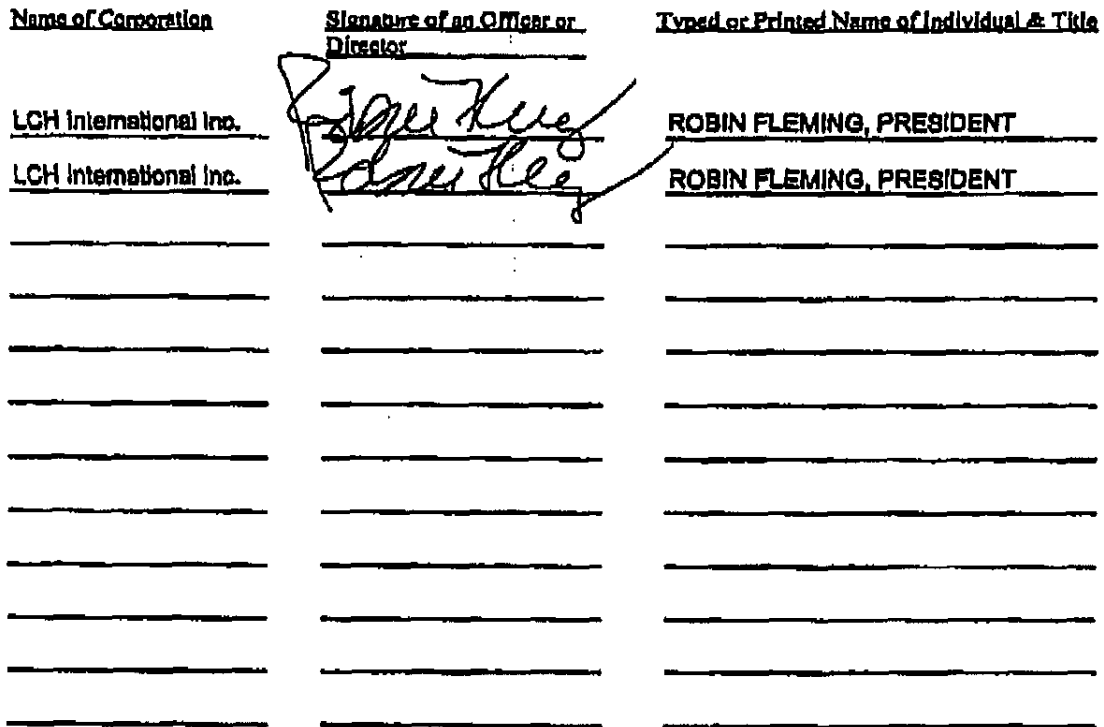 Name of Corporation Signature of an Officer or Director Typed or Printed Name of Individual & Title
LCH International Inc. ROBIN FLEMING, PRESIDENT
LCH International Inc. ROBIN FLEMING, PRESIDENT